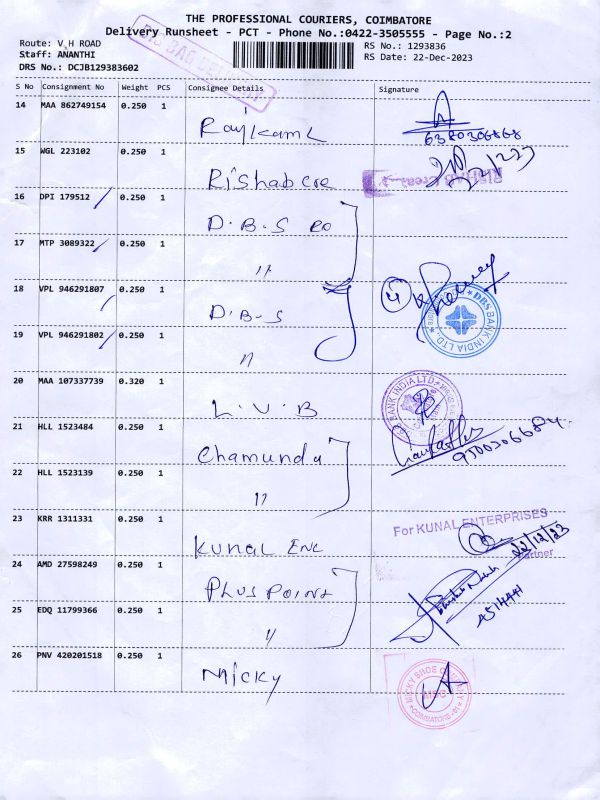 THE PROFESSIONAL COURIERS, COIMBATORE
Delivery Runsheet - PCT - Phone No.:0422-3505555 - Page No.:2
Route: V H ROAD
Staff: ANANTHI
DRS No.: DCJB129383602
RS No.: 1293836
RS Date: 22-Dec-2023
S No Consignment No Weight PCS Consignee Details Signature
14 MAA 862749154 0.250 1
6380306868
15 WGL 223102 0.250 1 Rishab
16 DPI 179512 0.250 1 D.B.S
17 MTP 3089322 0.250 1 "
18 VPL 946291807 0.250 1 D.B.S
DBS BANK INDIA LTD.
19 VPL 946291802 0.250 1 "
20 MAA 107337739 0.320 1 L.V.B
BANK INDIA LTD
21 HLL 1523484 0.250 1 Chamunda
22 HLL 1523139 0.250 1 "
23 KRR 1311331 0.250 1 KUNAL ENC
For KUNAL ENTERPRISES
22/12/23
Partner
24 AMD 27598249 0.250 1 PLUS POINT
25 EDQ 11799366 0.250 1 "
26 PNV 420201518 0.250 1 MICKY
MICKY SHOE COMPANY
MSC
COIMBATORE